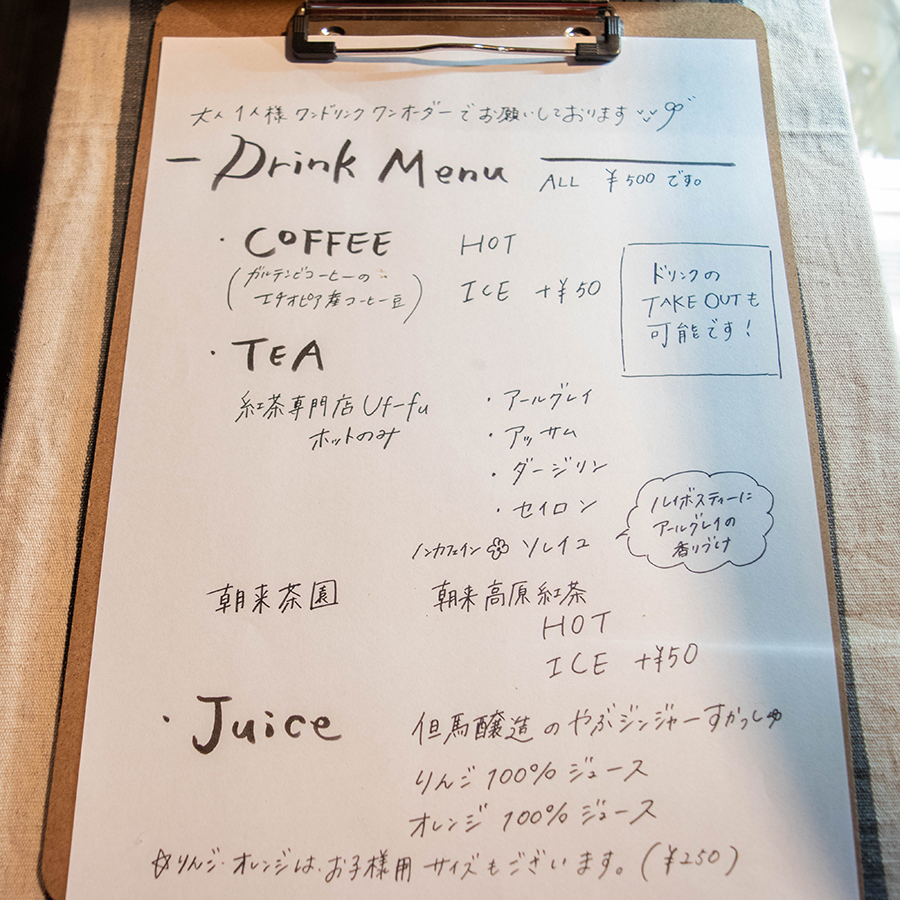 大人1人様 ワンドリンク ワンオーダーでお願いしております
Drink Menu
ALL ¥500です。
・COFFEE HOT
(ガルテンビコーヒーの
エチオピア産コーヒー豆)
ICE +¥50
ドリンクの
TAKE OUTも
可能です!
・TEA
紅茶専門店 Uf-fu
ホットのみ
・アールグレイ
・アッサム
・ダージリン
・セイロン
ノンカフェイン ソレイユ
ルイボスティーに
アールグレイの
香りづけ
朝来茶園 朝来高原紅茶
HOT
ICE +¥50
・Juice 但馬醸造のやぶジンジャーすかっしゅ
りんご100%ジュース
オレンジ100%ジュース
☆りんご・オレンジは、お子様用サイズもございます。(¥250)